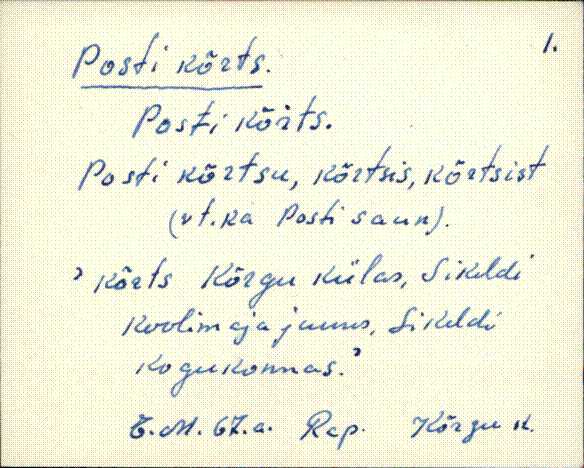 1.
Posti kõrts.
Posti kõrts.
Posti kõrtsu, kõrtsis, kõrtsist
(vt. ka Posti saun).
› kõrts Kõrgu külas, Sikeldi
koolimaja juures, Sikeldi
kogukonnas.›
E.M. 67.a. Rap. Kõrgu k.